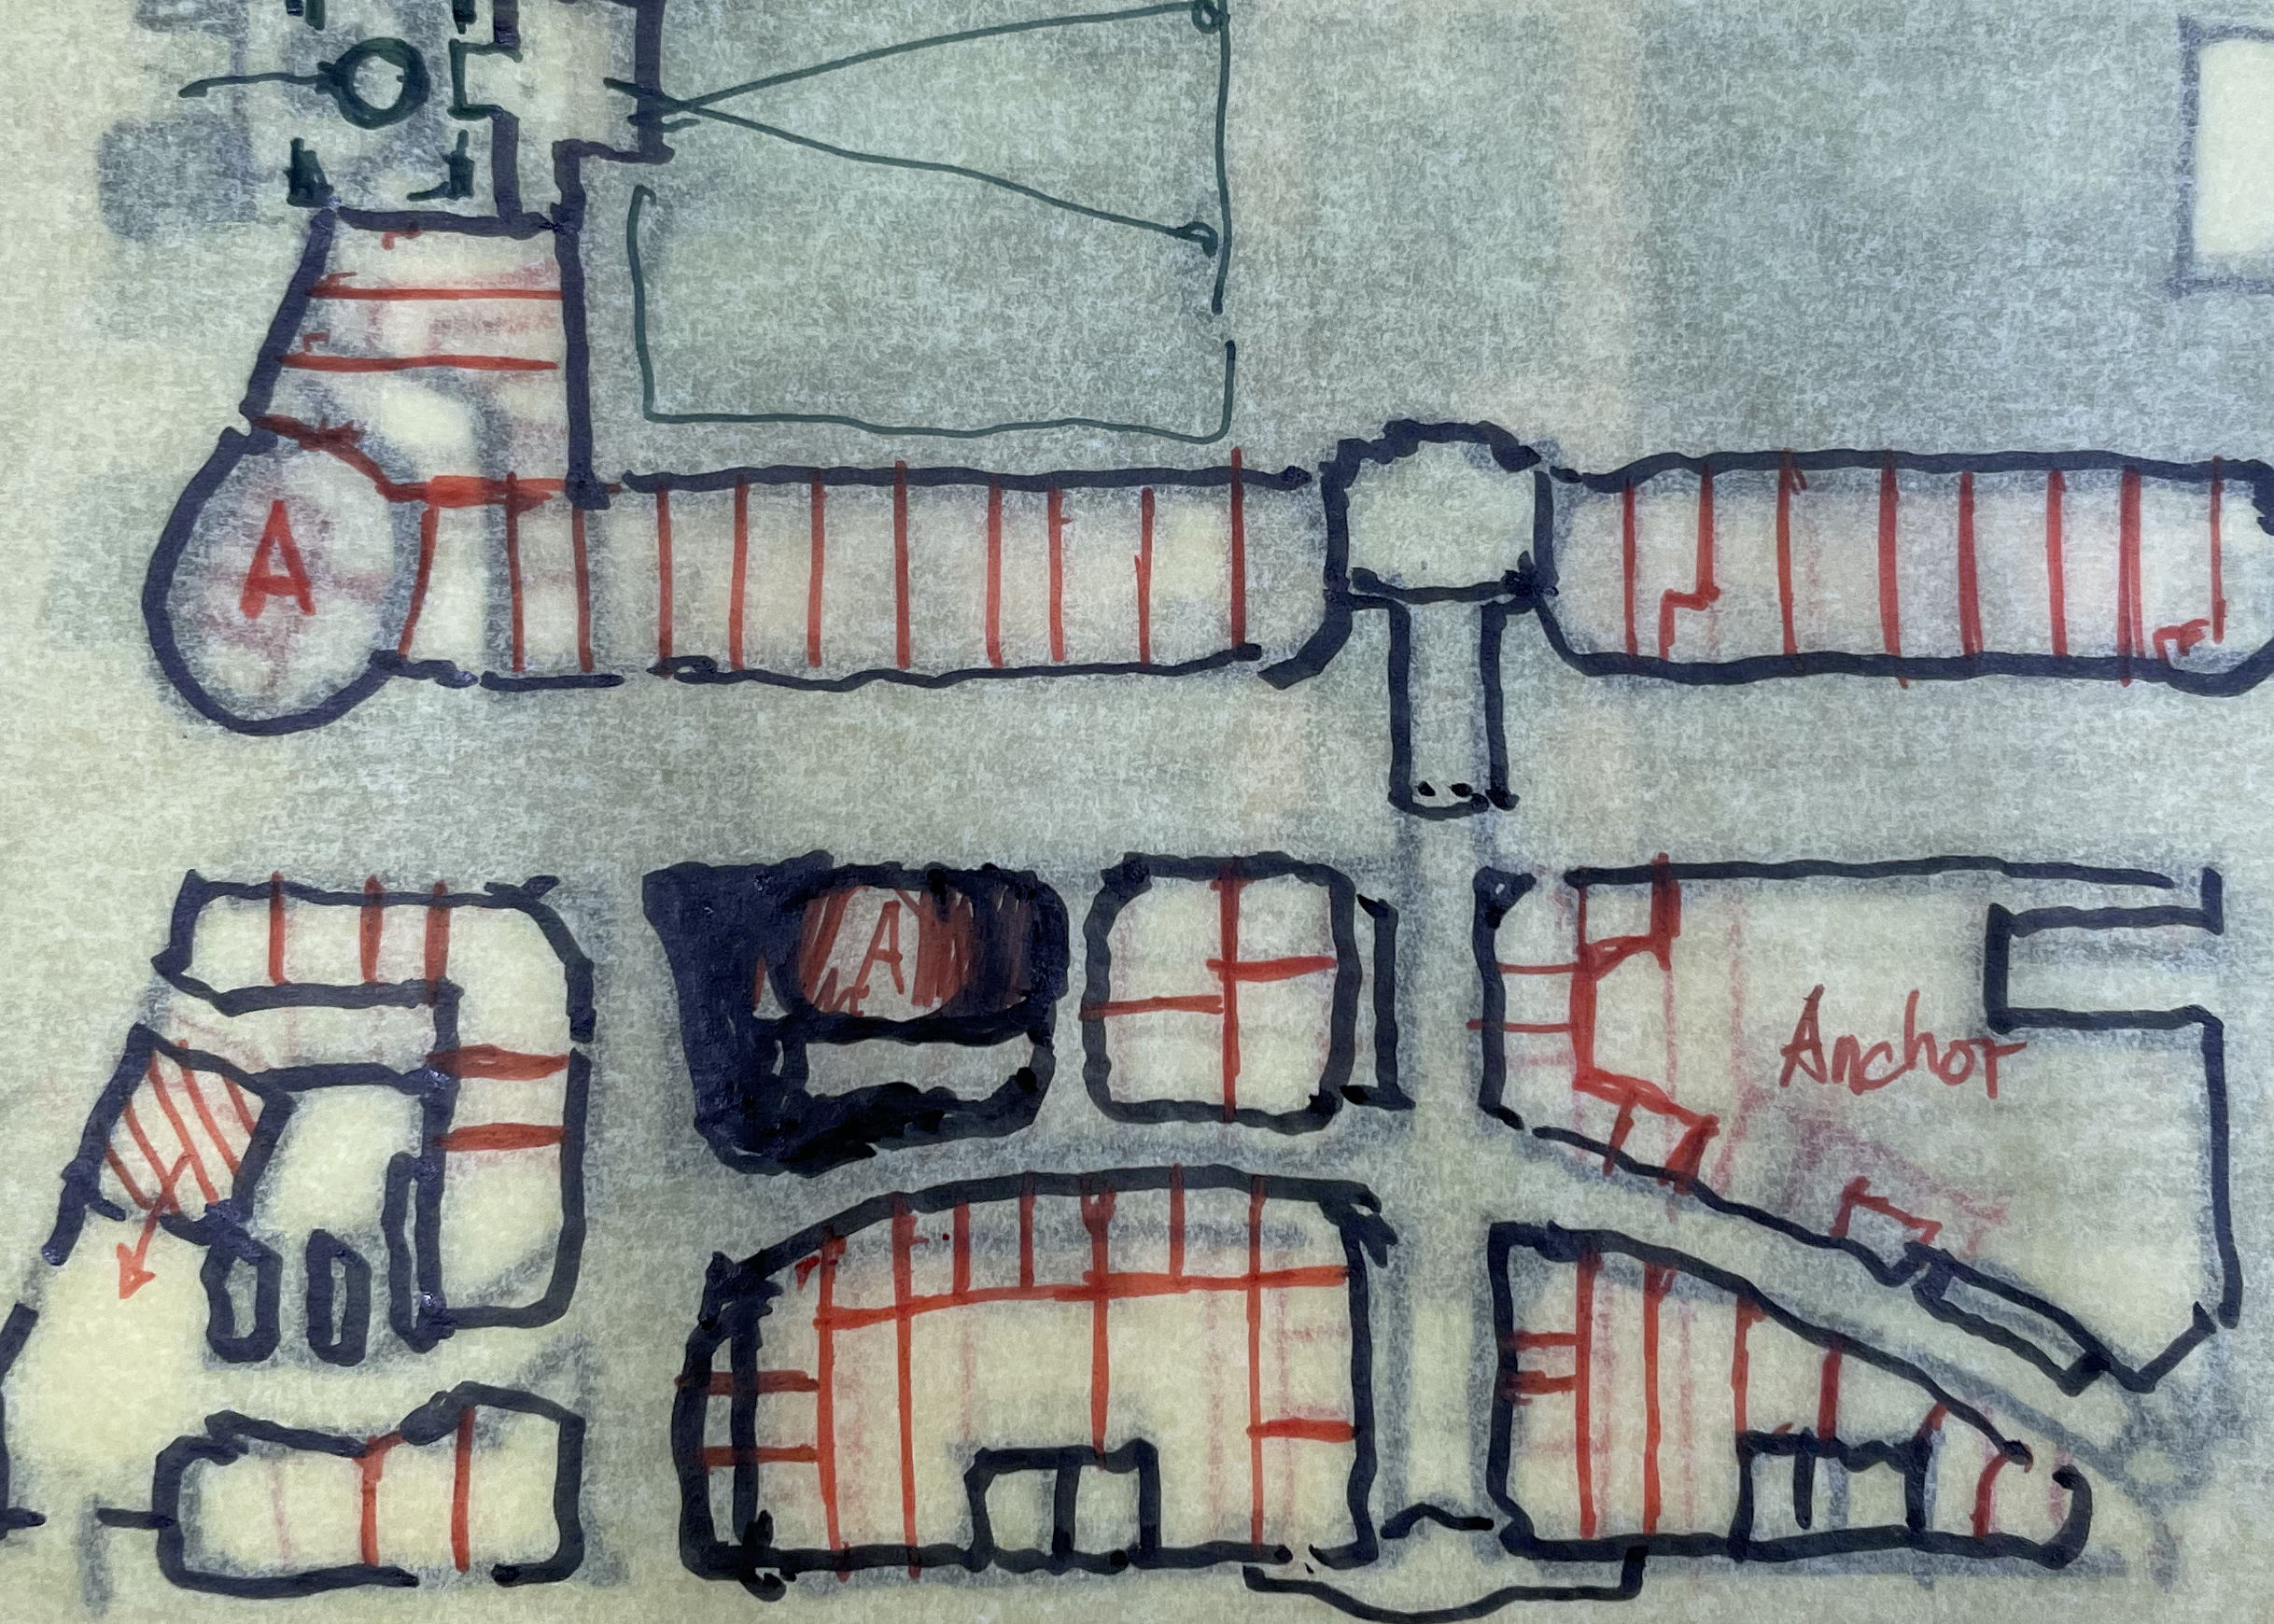 A
A
Anchor